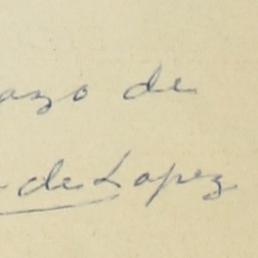 azo de
de Lopez